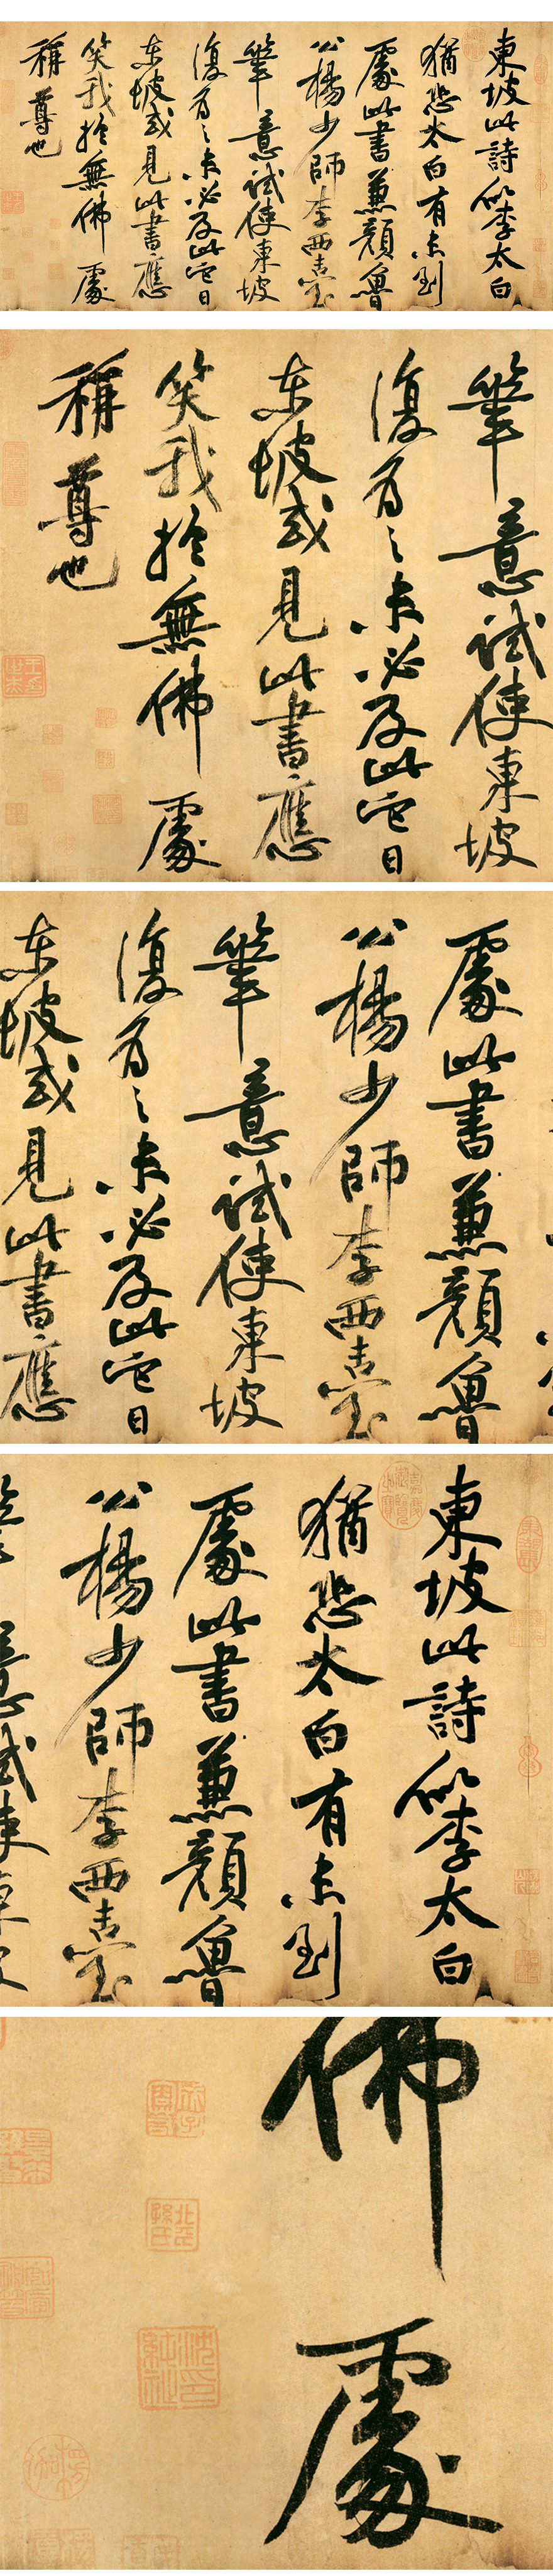 東坡此詩似李太白
猶恐太白有未到
處此書兼顏魯
公楊少師李西臺
筆意試使東坡
復為之未必及此它日
東坡或見此書應
笑我於無佛處
稱尊也
筆意試使東坡
復為之未必及此它日
東坡或見此書應
笑我於無佛處
稱尊也
處此書兼顏魯
公楊少師李西臺
筆意試使東坡
復為之未必及此它日
東坡或見此書應
東坡此詩似李太白
猶恐太白有未到
處此書兼顏魯
公楊少師李西臺
佛處